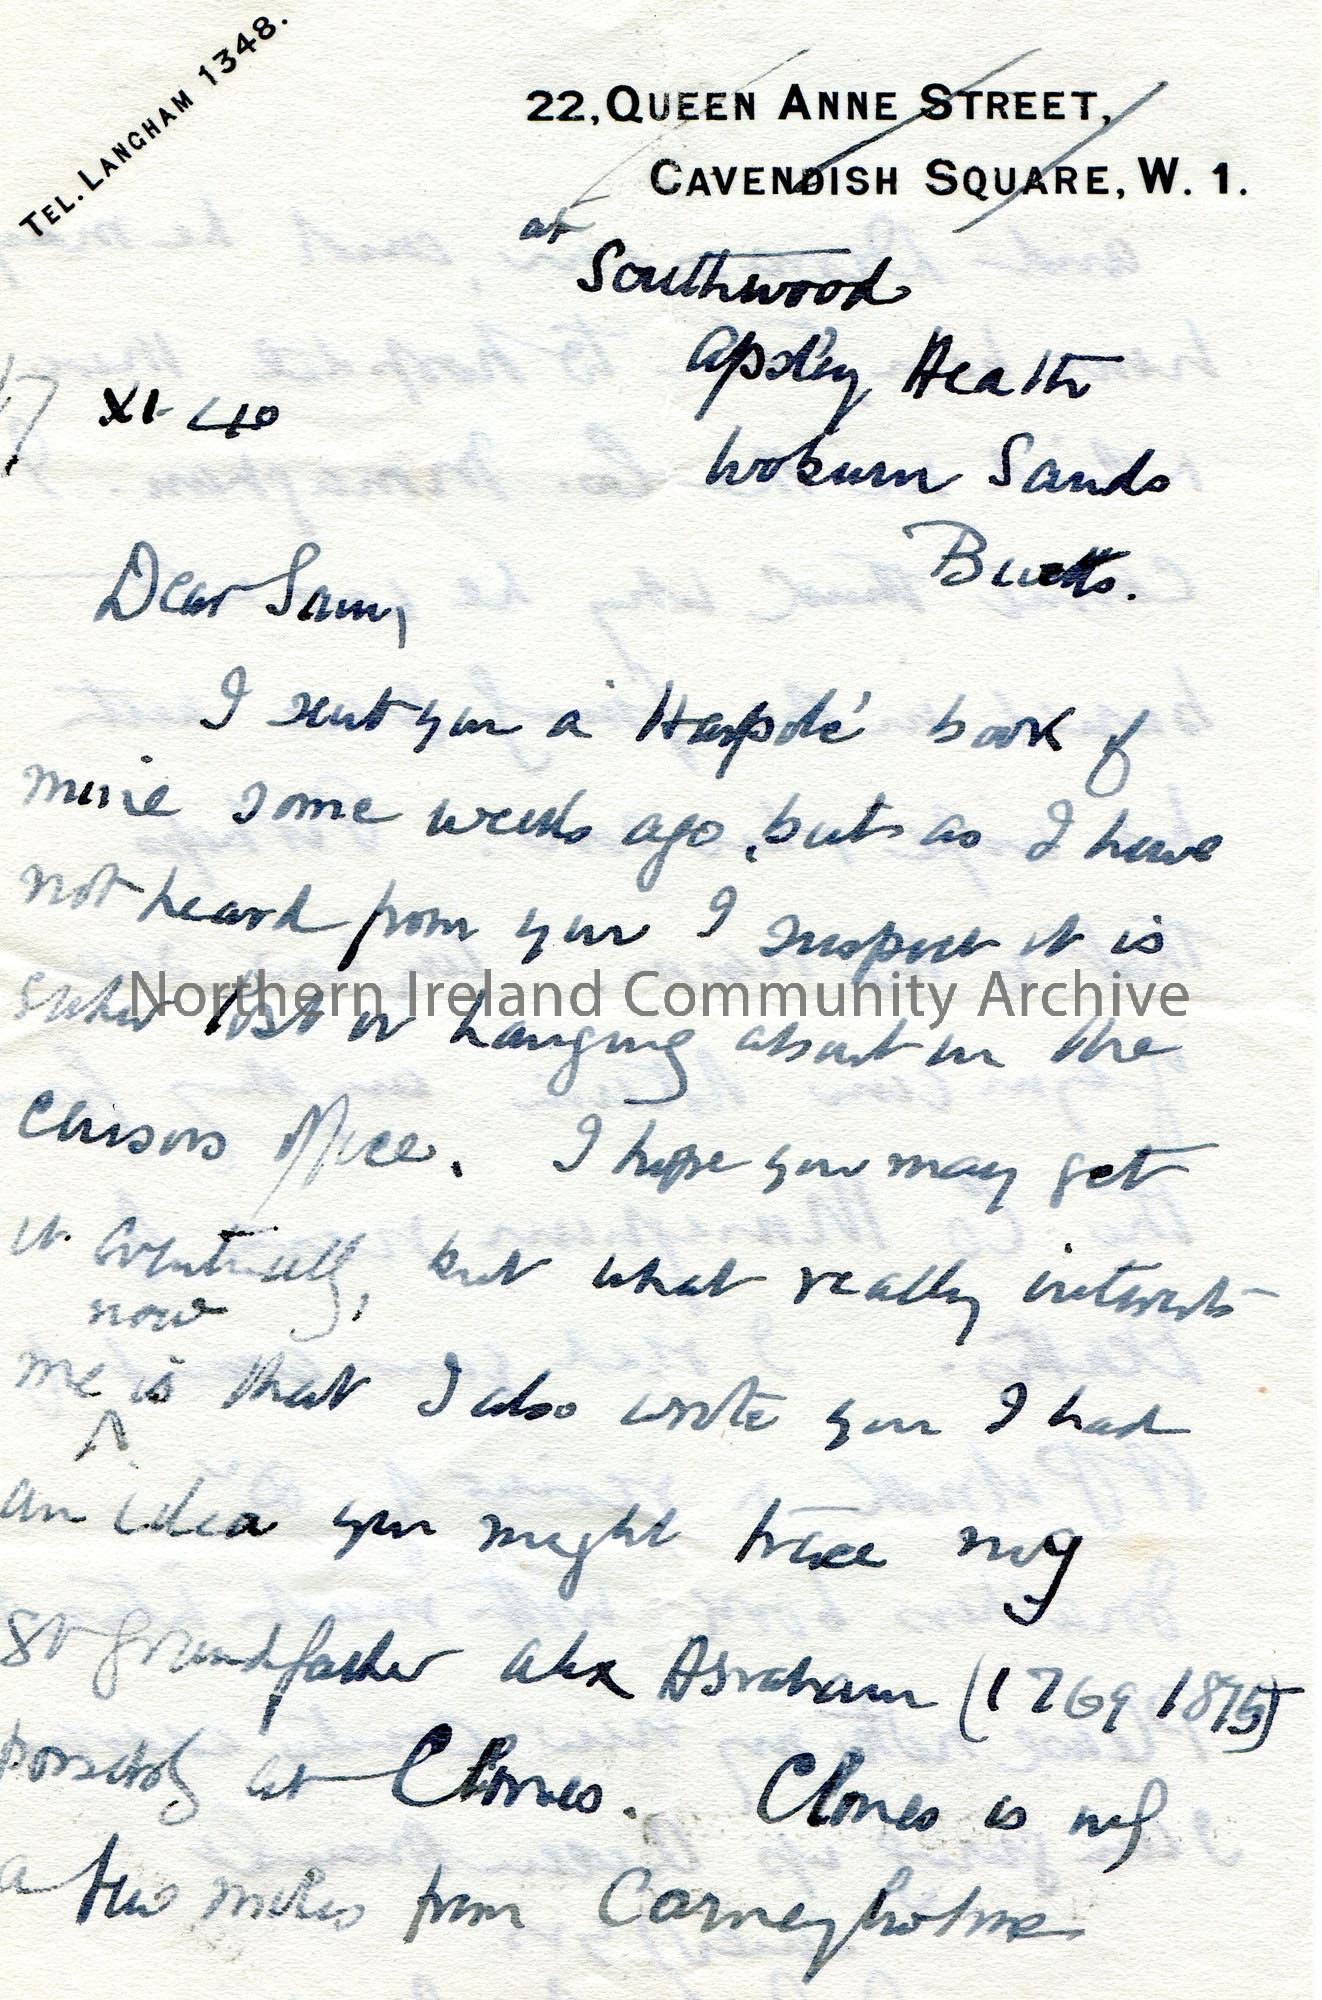 TEL. LANGHAM 1348.
22, QUEEN ANNE STREET,
CAVENDISH SQUARE, W. 1.
at
Southwood
Apsley Heath
Woburn Sands
Bucks.
XI 40
Dear Samy
I sent you a 'Harpole' book of
mine some weeks ago, but as I have
not heard from you I suspect it is
either lost or hanging about in the
Censors Office. I hope you may get
it eventually, but what really interests
now
me is that I also wrote you I had
an idea you might trace my
gt grandfather Alex Abraham (1769 1875)
possibly at Clones. Clones is only
a few miles from
Northern Ireland Community Archive